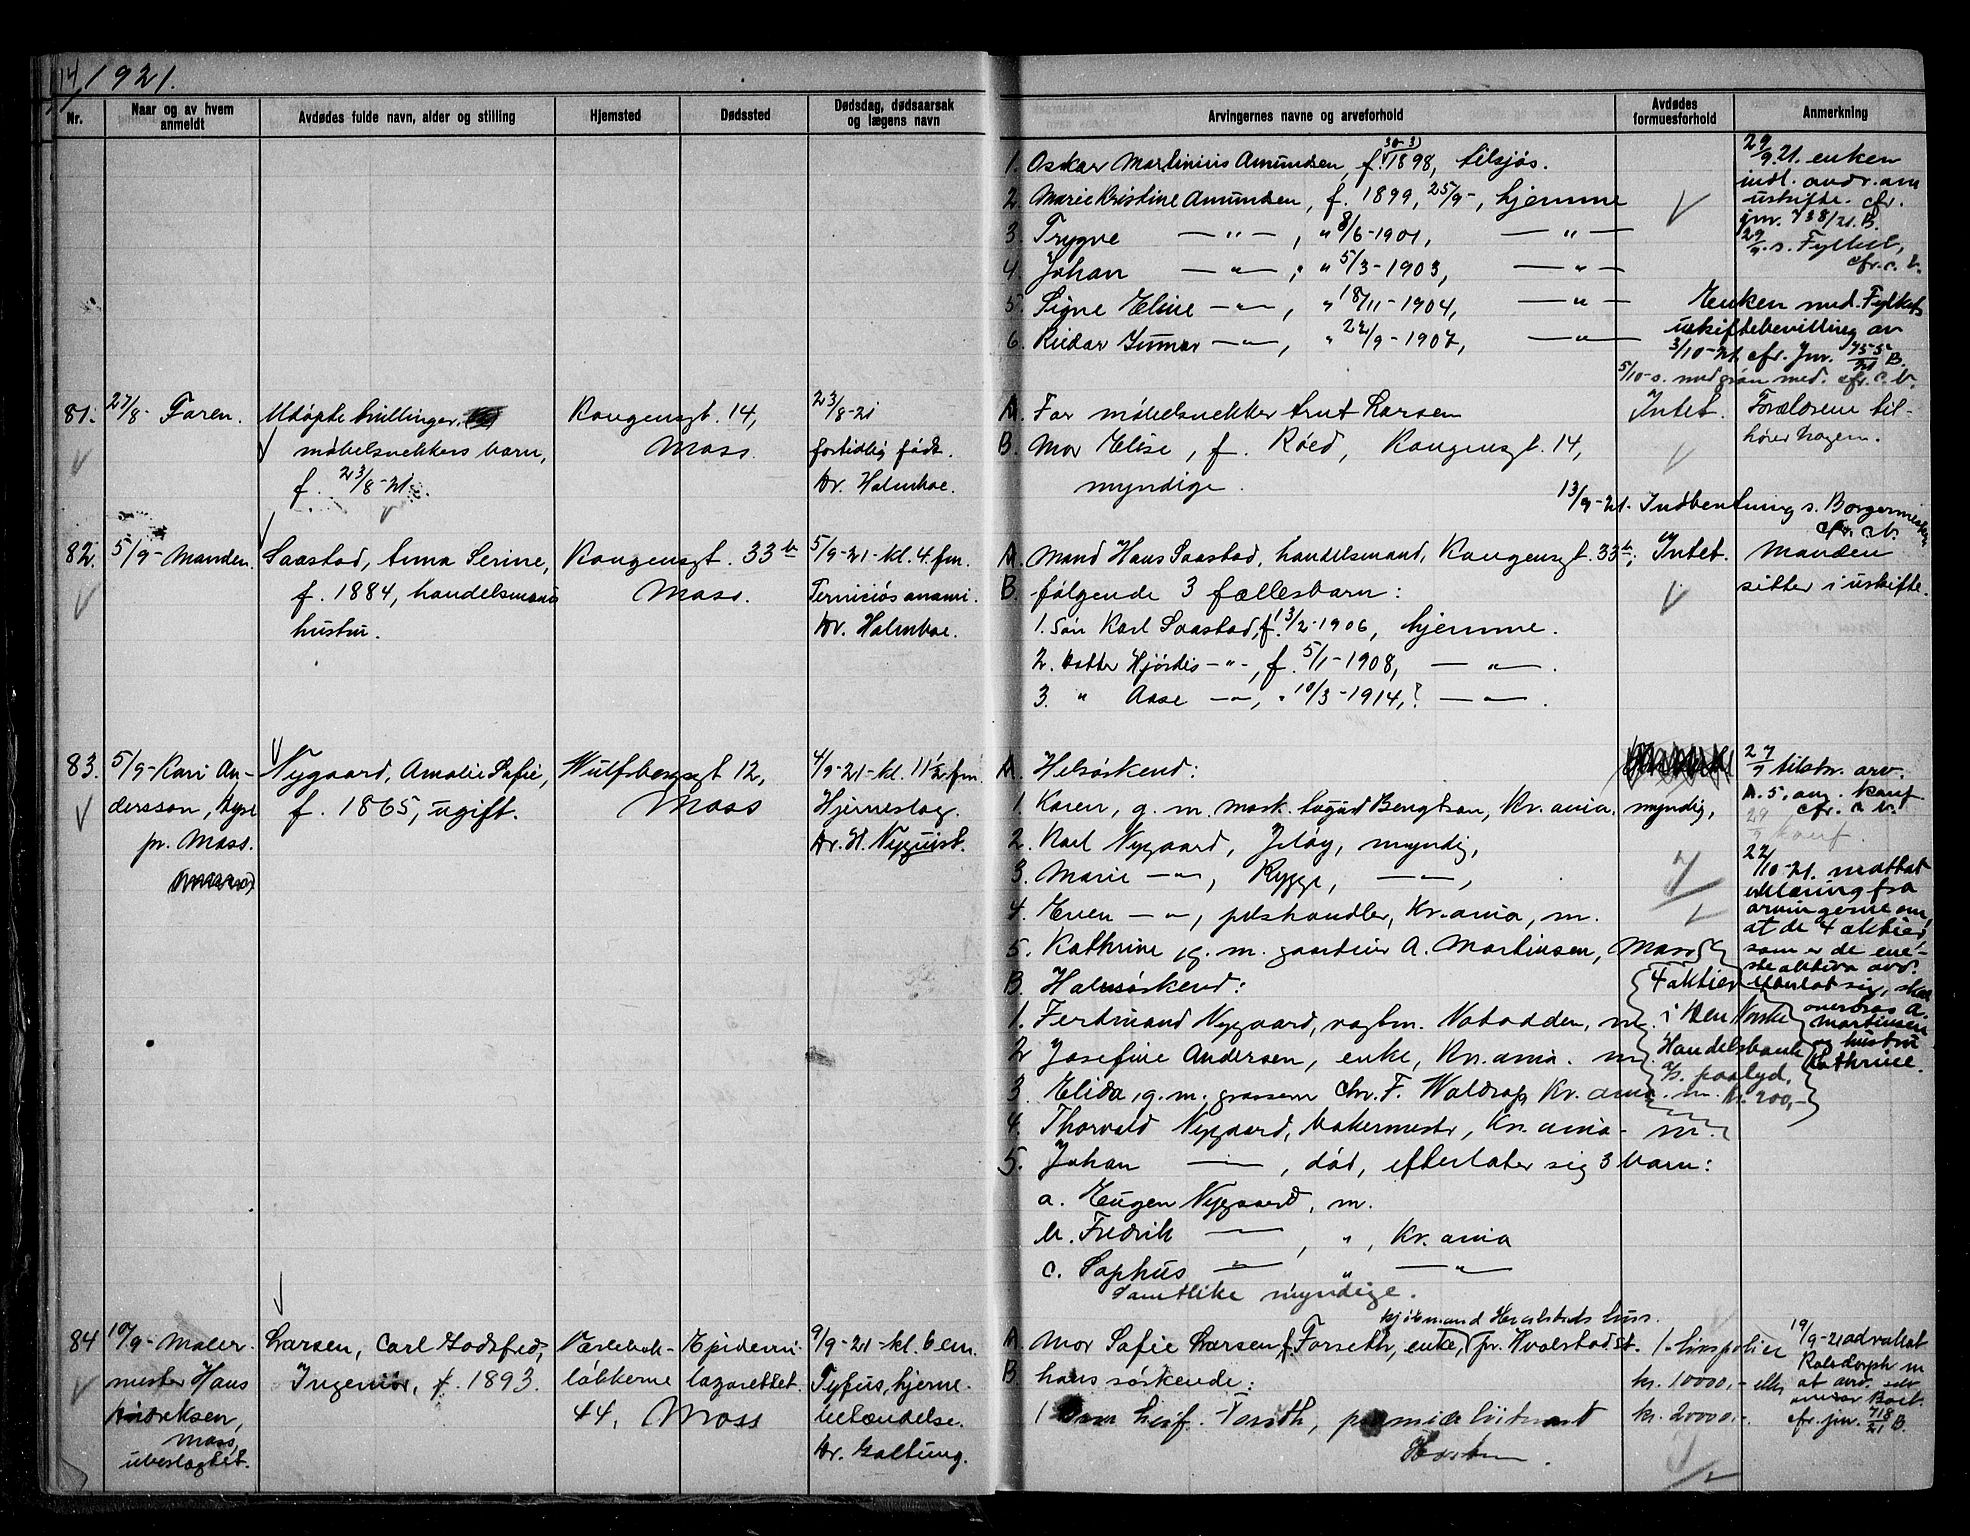 14
1921.
Nr.
Naar og av hvem anmeldt
Avdødes fulde navn, alder og stilling
Hjemsted
Dødssted
Dødsdag, dødsaarsak og lægens navn
Arvingernes navne og arveforhold
Avdødes formuesforhold
Anmerkning
1. Oskar Martinius Amundsen, f. 30-3 1898, tilsjøs.
2. Marie Kristine Amundsen, f. 1899, 25/9-, hjemme
3. Trygve —"—, " 8/6-1901, —"—
4. Johan —"—, " 5/3-1903, —"—
5. Signe Eline —"—, " 18/11-1904, —"—
6. Reidar Gunnar —"—, " 22/9-1907, —"—
29/9.21. enken
indl. andr. om
uskifte. cfr.
jnr. 738/21. B.
29/9. s. Fylket,
cfr. c. b.
Enken med. Fylkets
uskiftebevilling av
3/10-21. cfr. Jnr. 755/21 B.
5/10-s. med. cfr. c. b.
81.
27/8- Faren.
Udøpte tvillinger,
møbelsnekkers barn,
f. 23/8-21.
Kongensgt. 14,
Moss.
23/8-21
fortidlig født.
Dr. Holmboe.
A. Far møbelsnekker Knut Larsen
B. Mor Elise, f. Røed, Kongensgt. 14,
myndige.
Intet.
Forældrene til-
hører
13/9-21. Indberetning s. Borgermesteren
cfr. c. b.
82.
5/9- Manden.
Saastad, Anna Serine,
f. 1884, handelsmands
hustru.
Kongensgt. 33b
Moss.
5/9-21-kl. 4. fm.
Perniciøs anæmi.
Dr. Holmboe.
A. Mand Hans Saastad, handelsmand, Kongensgt. 33b,
B. følgende 3 fællesbarn:
1. Søn Karl Saastad, f. 13/2-1906, hjemme.
2. Datter Hjørdis -"-, f. 5/1-1908, —"—.
3. " Aase —"—, " 10/3-1914, —"—.
Intet.
Manden
sitter i uskifte.
83.
5/9- Kari An-
dersson, Kyse
pr. Moss.
Nygaard, Amalie Sofie,
f. 1865, ugift.
Wulfsbergsgt 12,
Moss
4/9-21-kl. 11½ fm.
Hjerneslag.
Dr. H. Nyquist.
A. Helsøskend:
1. Karen, g. m. Bengtson, Kr.ania, myndig,
2. Karl Nygaard, Jeløy, myndig,
3. Marie —"—, Rygge, —"—,
4. Even —"—, pelshandler, Kr.ania, m.
5. Kathrine, g. m. gaardeier A. Martinsen, Moss
B. Halvsøskend:
1. Ferdinand Nygaard, vagtm. Notodden, m.
2. Josefine Andersen, enke, Kr.ania. m.
3. Elida, g. m. grosserer Chr. F. Waldrop Kr.ania. m.
4. Thorvald Nygaard, bakermestr, Kr.ania - m.
5. Johan —"—, død, efterlater sig 3 barn:
a. Eugen Nygaard, m.
b. Fredrik —"—, ", Kr.ania
c. Sophus —"— " —"—
Samtlike myndige.
4 aktier
i Den Norske
Handelsbank
a/s. paalyd.
kr. 200,-
27/9 tilskr. arv.
A. 5, ang. konf
cfr. c. b.
29/9 konf.
22/10-21. mottat
erklæring fra
arvingerne om,
at de 4 aktier,
som er de ene-
ste aktiva avd.
efterlot sig, skal
overdras A.
Martinsen
og hustru
Kathrine.
84
10/9- Maler-
mester Hans
Andreksen,
Moss,
ubeslagtet.
Larsen, Carl Godtfred,
Ingeniør, f. 1893.
Værlebak-
løkkerne
44, Moss
Epidemi-
lazarettet.
9/9-21-kl. 6 em.
Tyfus, hjerne-
betændelse.
Dr. Galtung.
A. Mor Sofie Larsen, f. Forseth, enke, (pr. Hvalstad st.
B. hans søskende:
1
Horten.
1. livspolice
kr. 10000,- eller
kr. 20000,-.
19/9-21 advokat
Rolsdorph m
at avd. selv
cfr. jnr. 718/21 B.